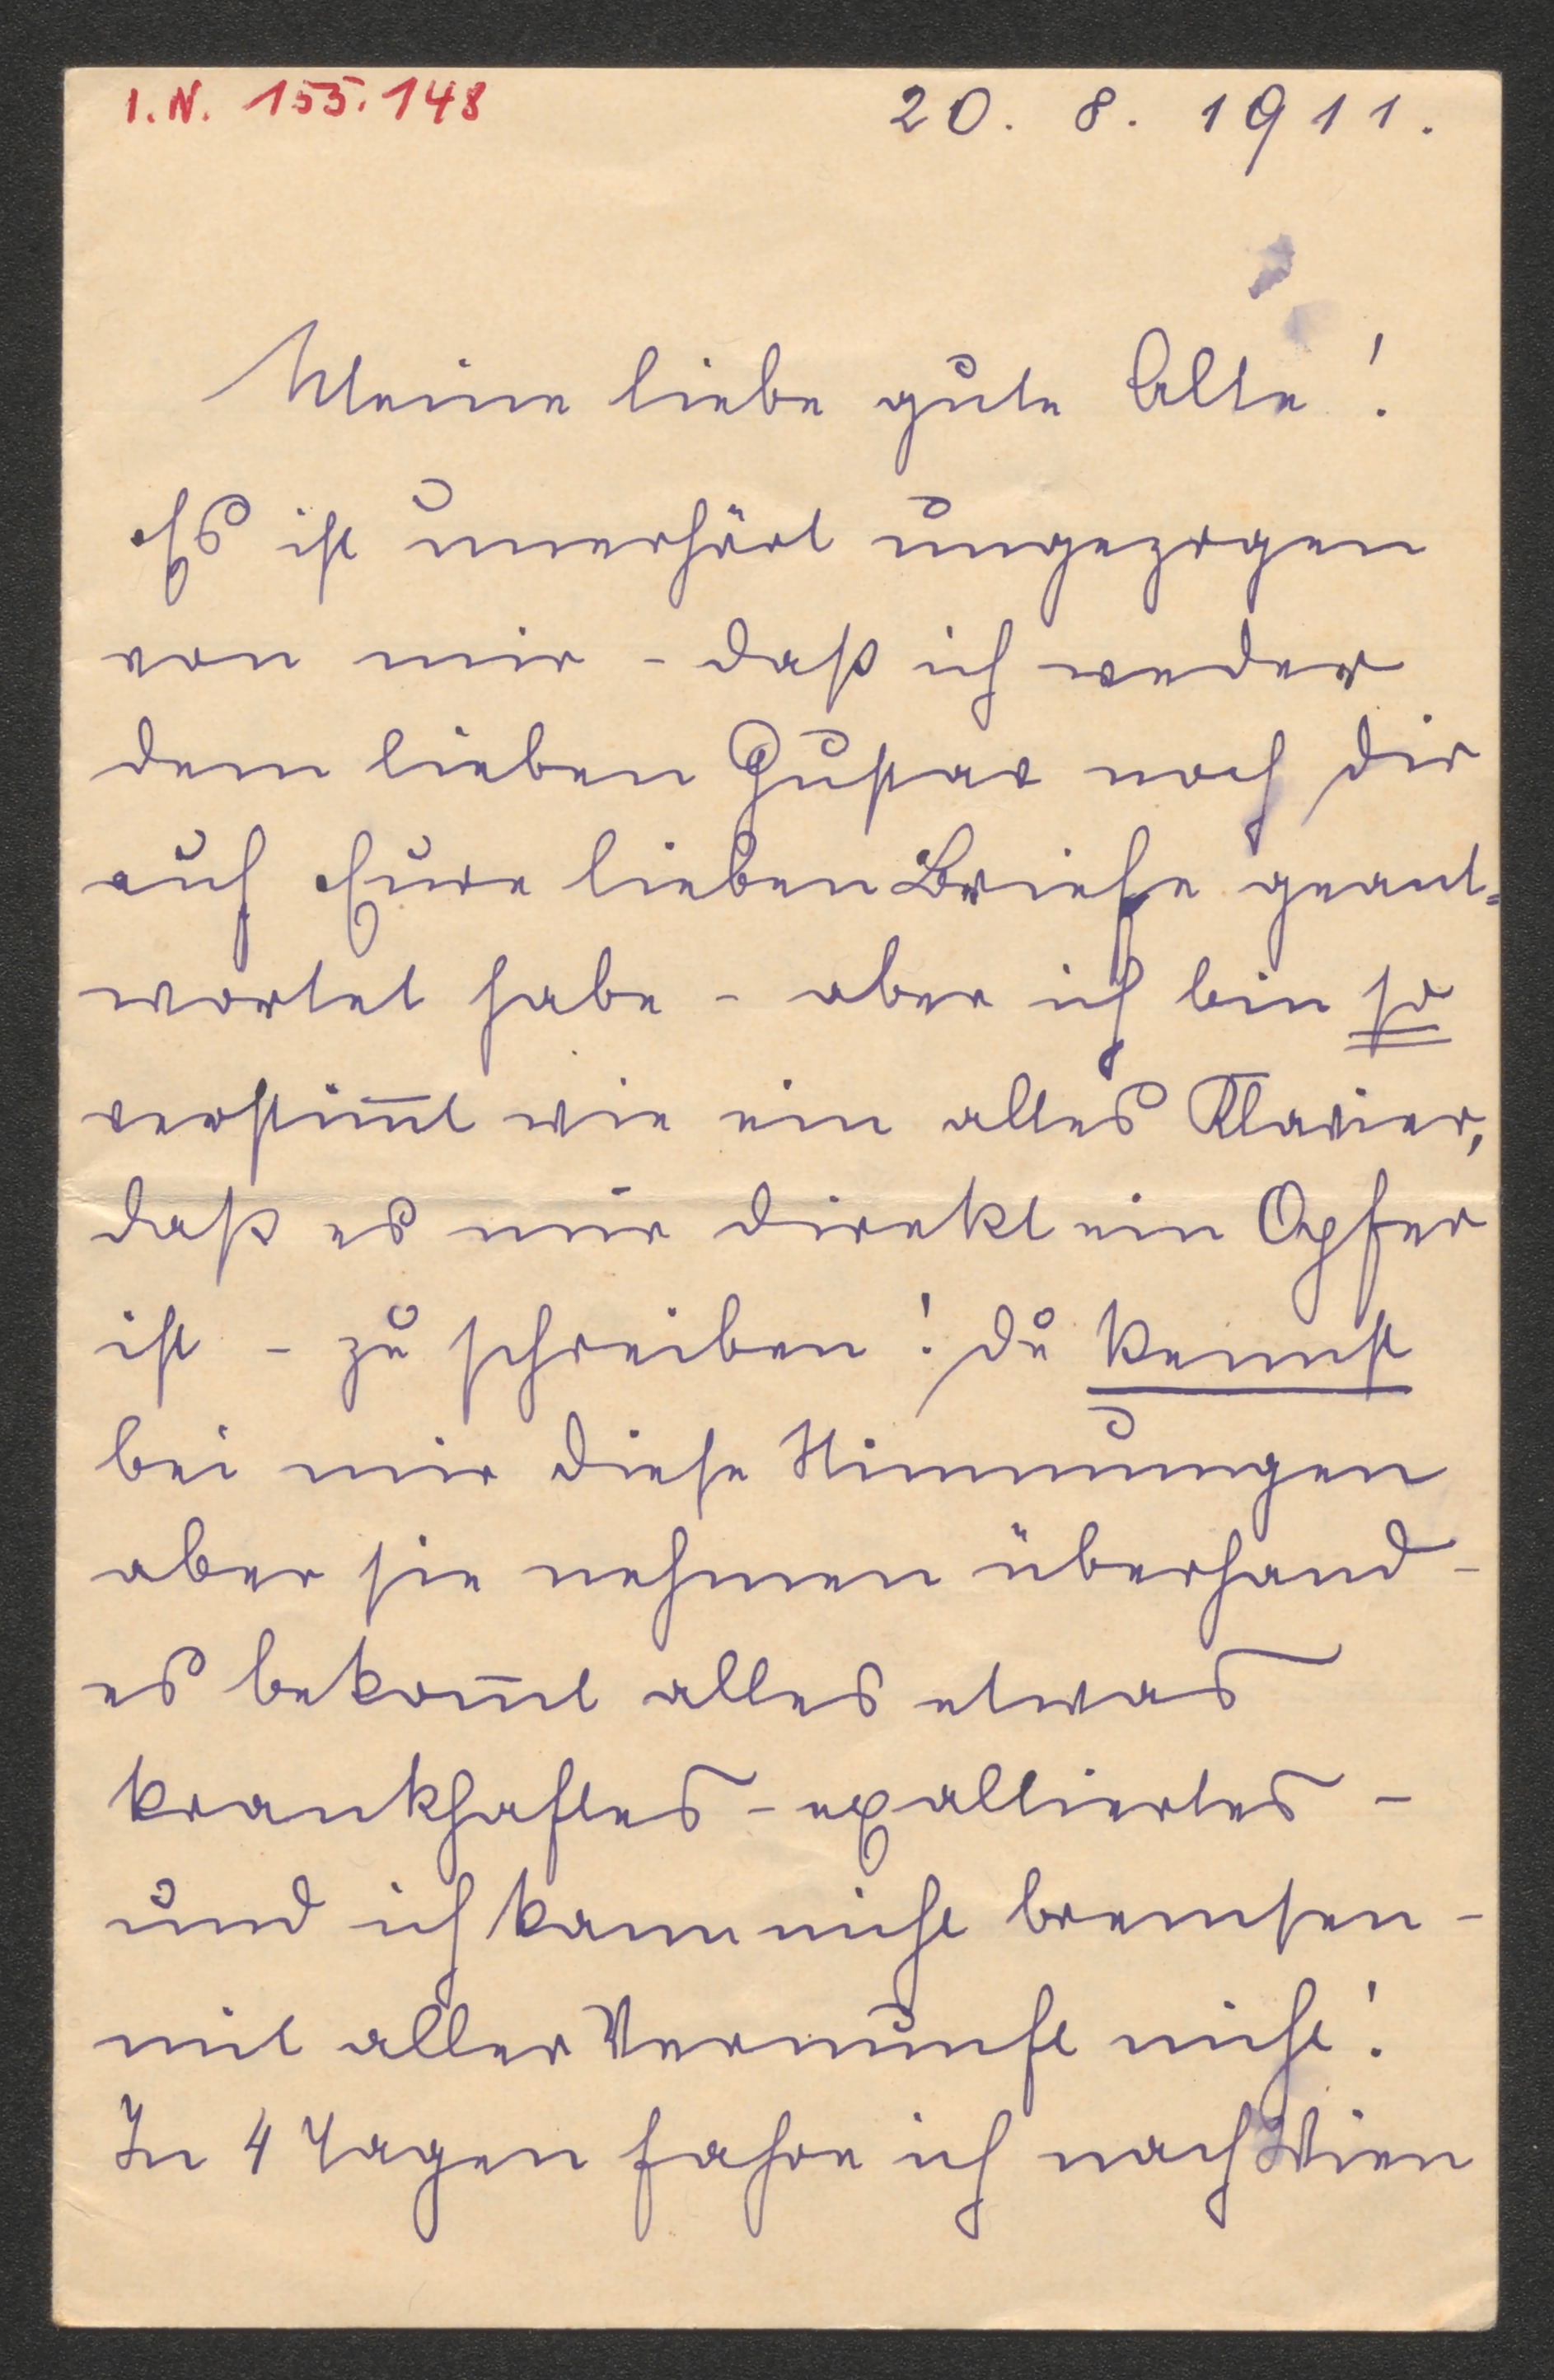 I.N. 155.148
20. 8. 1911.
Meine liebe gute Alte!
Es ist unerhört ungezogen
von mir - daß ich weder
dem lieben Gustav noch Dir
auf Eure lieben Briefe geant=
wortet habe - aber ich bin so
verstim̄t wie ein altes Klavier,
daß es mir direkt ein Opfer
ist - zu schreiben! Du kennst
bei mir diese Stimmungen
aber sie nehmen überhand -
es bekom̄t alles etwas
krankhaftes - exaltiertes -
und ich kann nicht bremsen -
mit aller Vernunft nicht!
In 4 Tagen fahre ich nach Wien